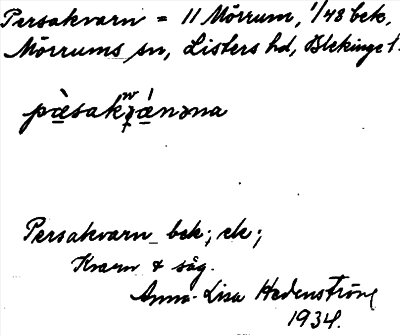 Persakvarn = 11 Mörrum, 1/48 bek,
Mörrums sn, Listers hd, Blekinge l.
Persakvarn bek; ek;
Kvarn & såg.
Anna-Lisa Hedenström
1934.